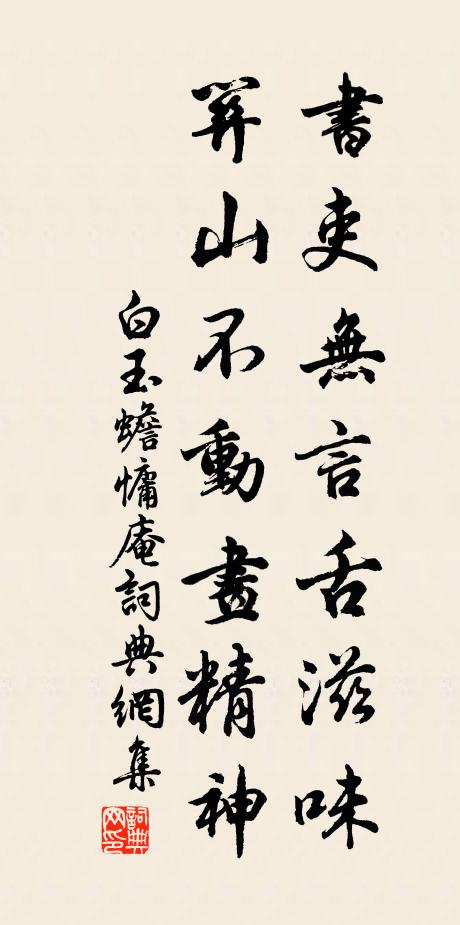 書吏無言舌滋味
笄山不動畫精神
白玉蟾慵庵詞典網集
詞典
网印